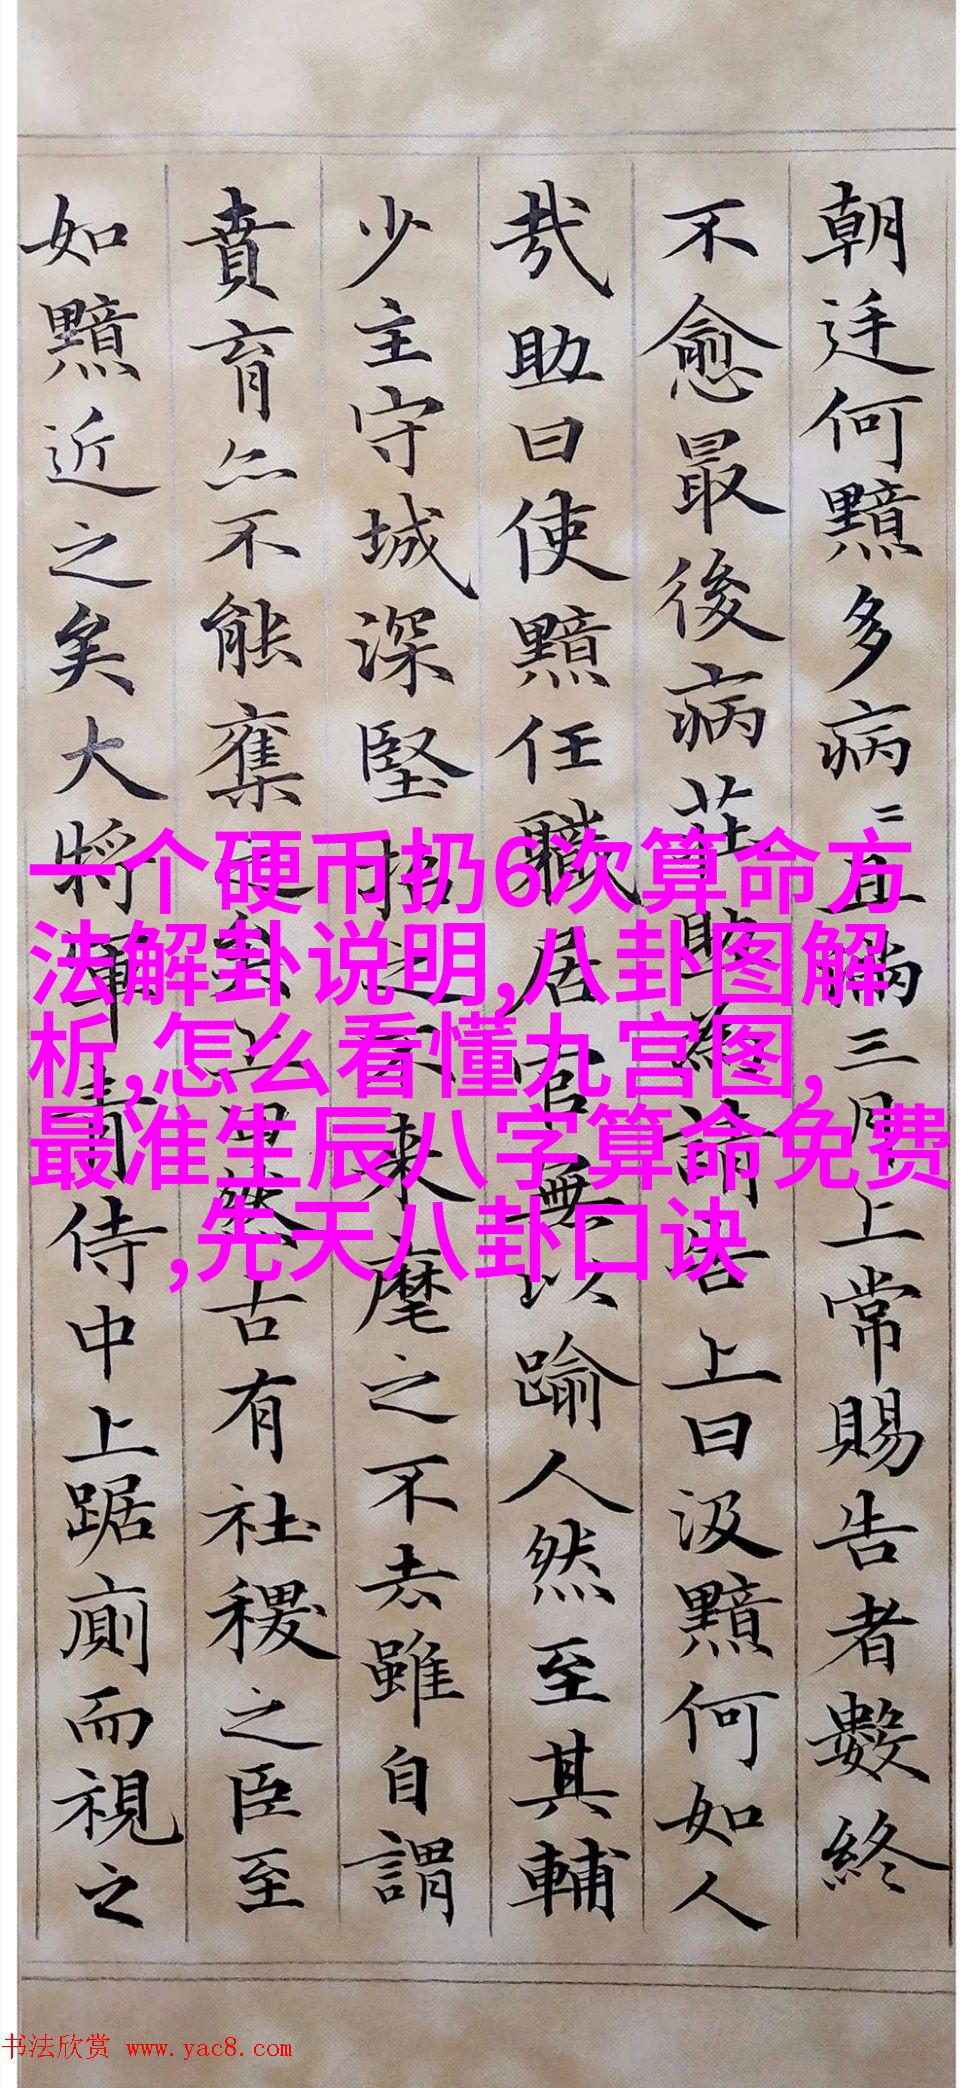 朝廷何黯多病〻且滿三月上常賜告者數終
不愈最後病莊助為請告上曰汲黯何如人
哉助曰使黯任職居官無以踰人然至其輔
少主守城深堅招之不來麾之不去雖自謂
賁育亦不能奪矣上曰然古有社稷之臣至
如黯近之矣大將軍青侍中上踞廁而視之
一个硬币扔6次算命方
法解卦说明,八卦图解
析,怎么看懂九宫图,
最准生辰八字算命免费
,先天八卦口诀
书法欣赏 www.yac8.com